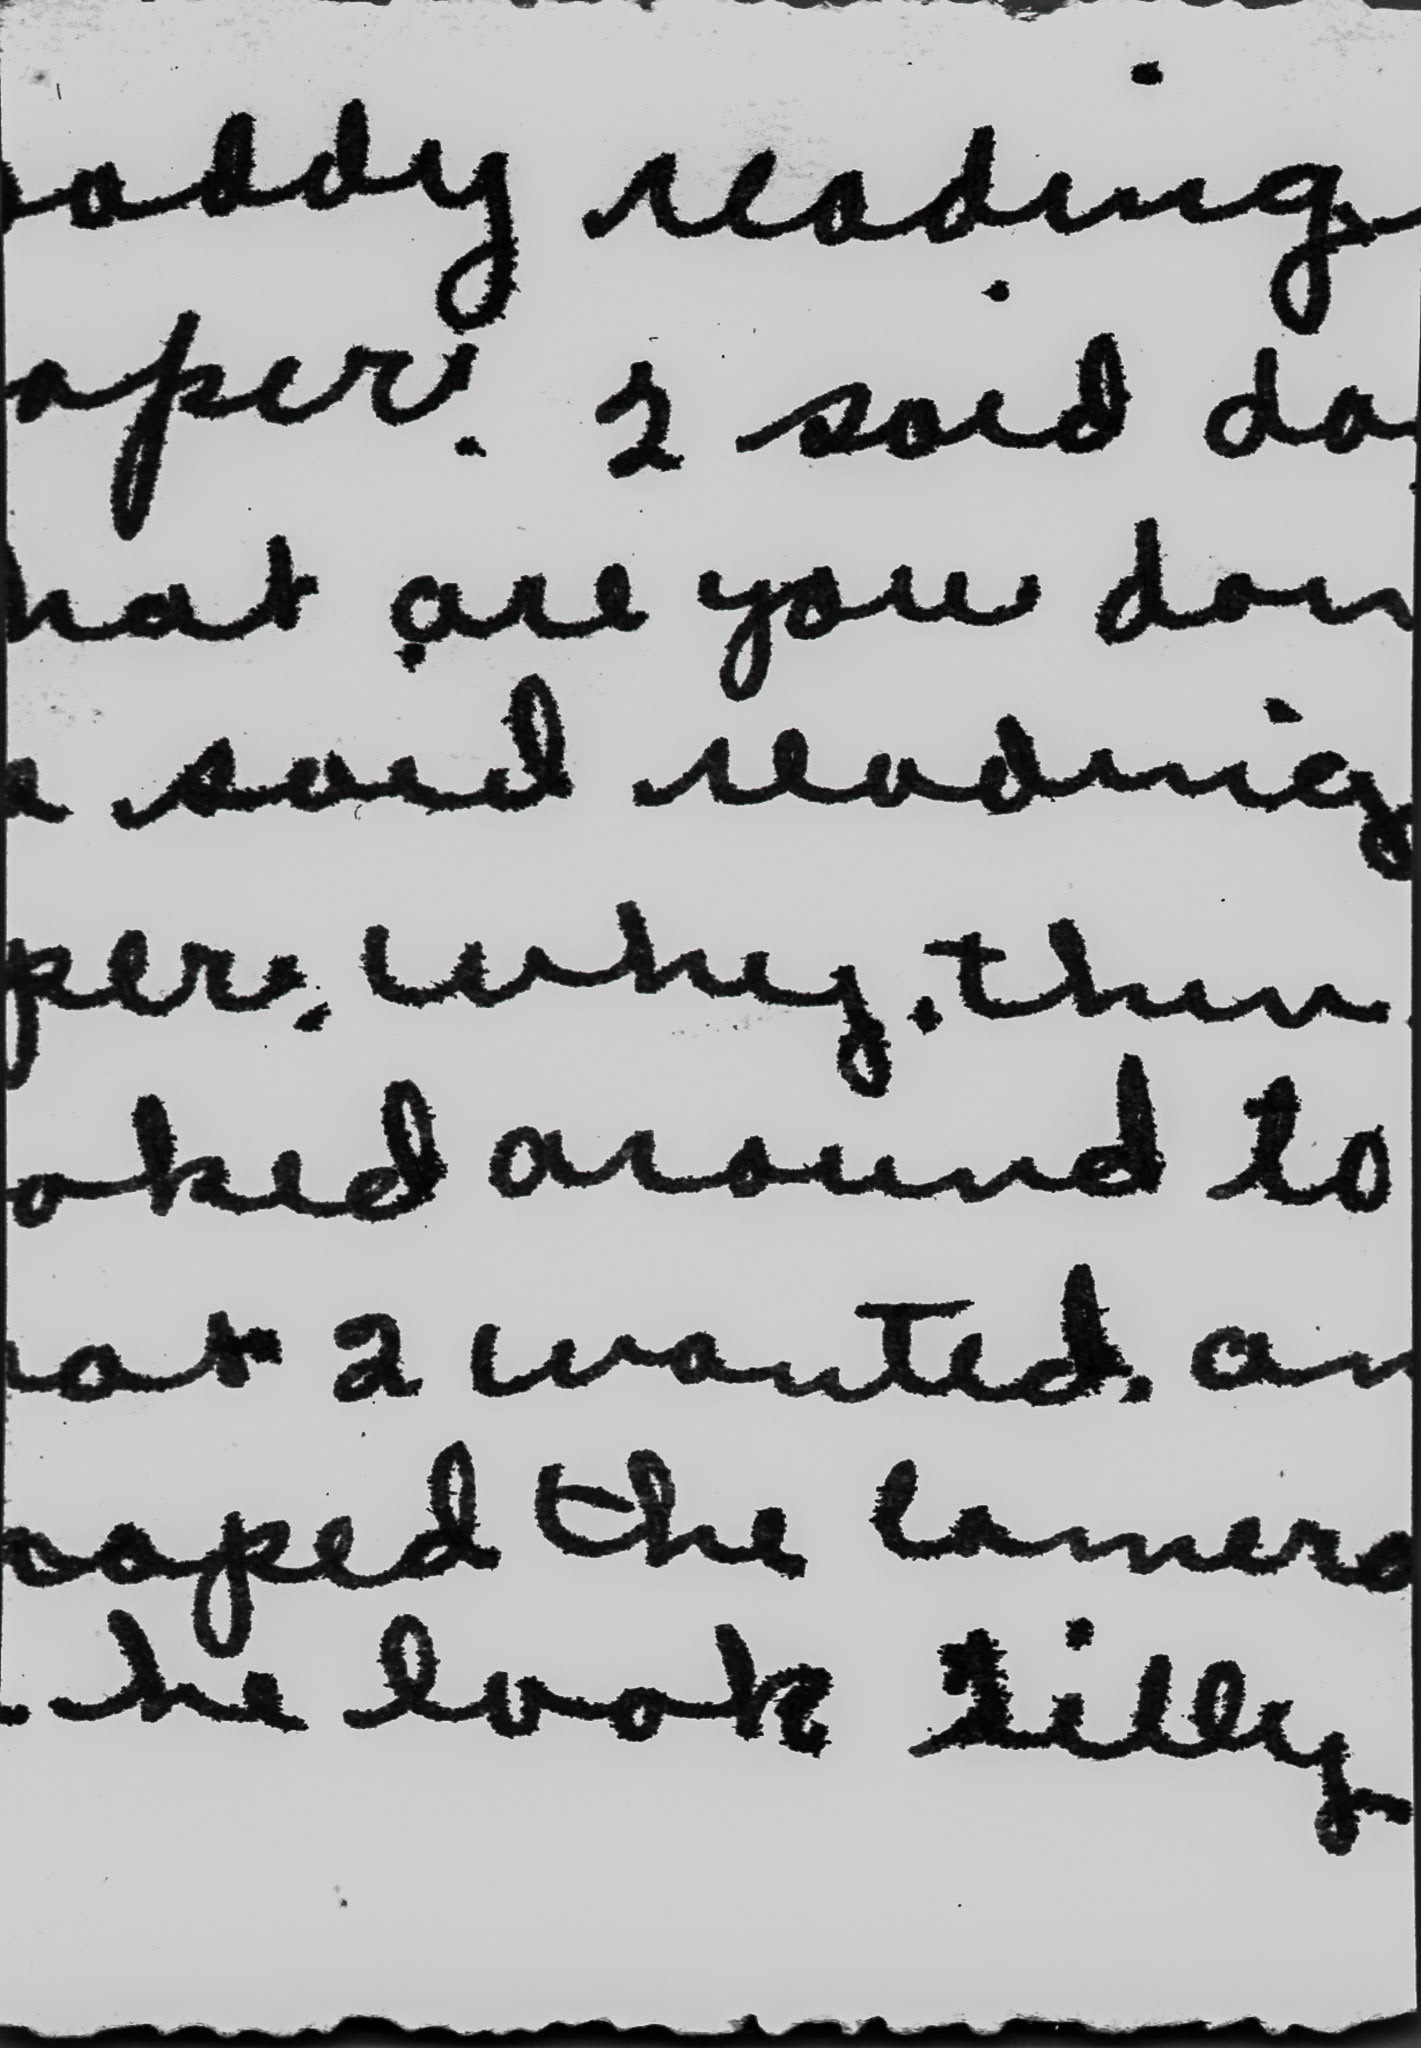 addy reading
aper. I said da
hat are you doin
e said reading
per. why. then
oked around to
at I wanted. an
aped the camera
he look silly